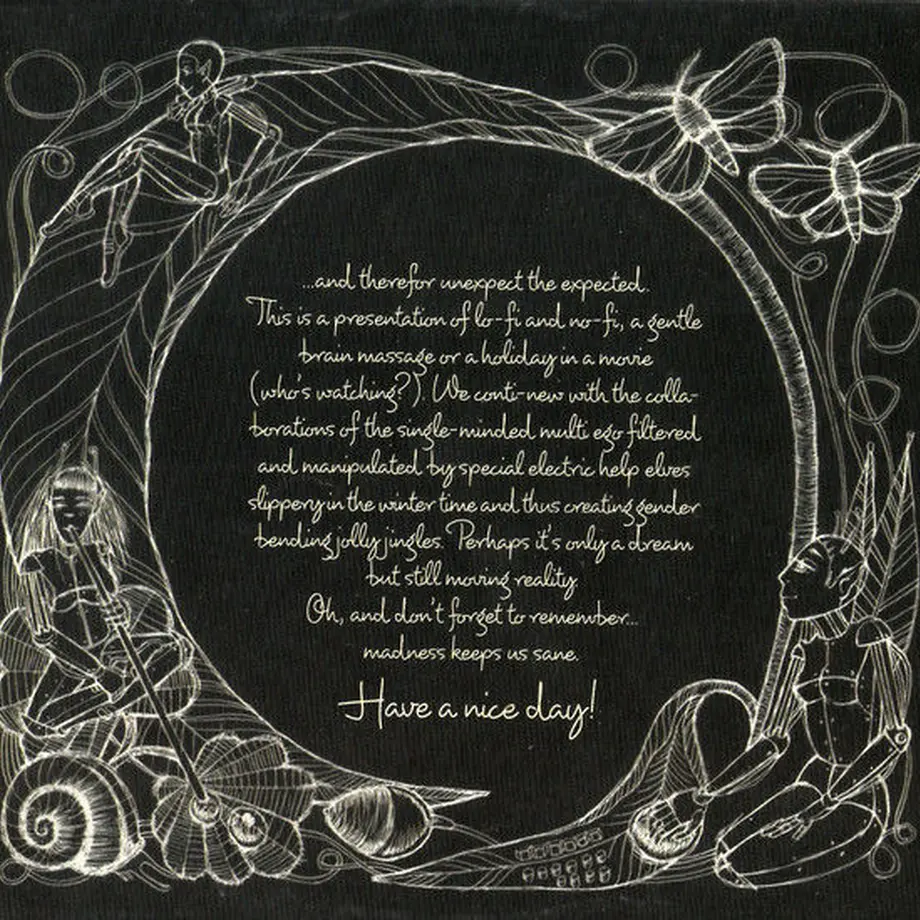 ...and therefor unexpect the expected.
This is a presentation of lo-fi and no-fi, a gentle
brain massage or a holiday in a movie
(who's watching?). We conti-new with the colla-
borations of the single-minded multi ego filtered
and manipulated by special electric help elves
slippery in the winter time and thus creating gender
bending jolly jingles. Perhaps it's only a dream
but still moving reality.
Oh, and don't forget to remember...
madness keeps us sane.
Have a nice day!